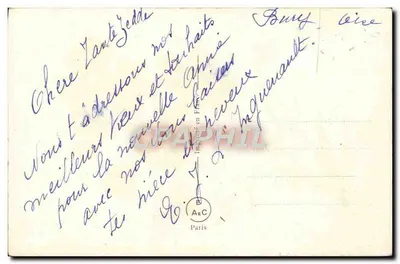 Bury Oise
Chère Tante
Nous t'adressons nos
meilleurs vœux et souhaits
pour la nouvelle année
avec nos bons baisers
tes nièce et neveux
E. J.
CPAPHIL
A&C
Paris